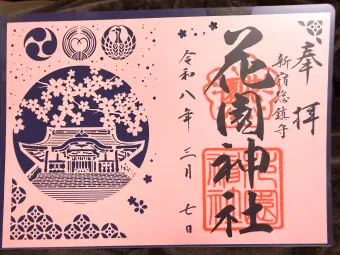 奉拝
新宿総鎮守
花園神社
令和八年三月七日